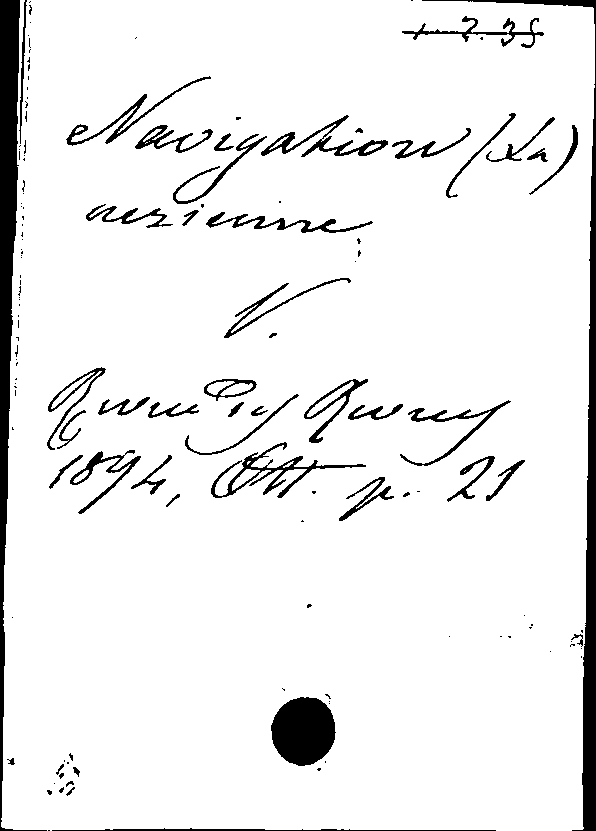 1.7.35
Navigation (La)
aérienne
V.
1894, Oct. p. 21